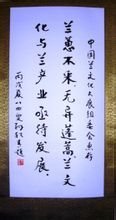 中国兰文化大展组委会惠存
兰蕙不采无异蓬蒿兰文
化与兰产业亟待发展
丙戌夏八四叟